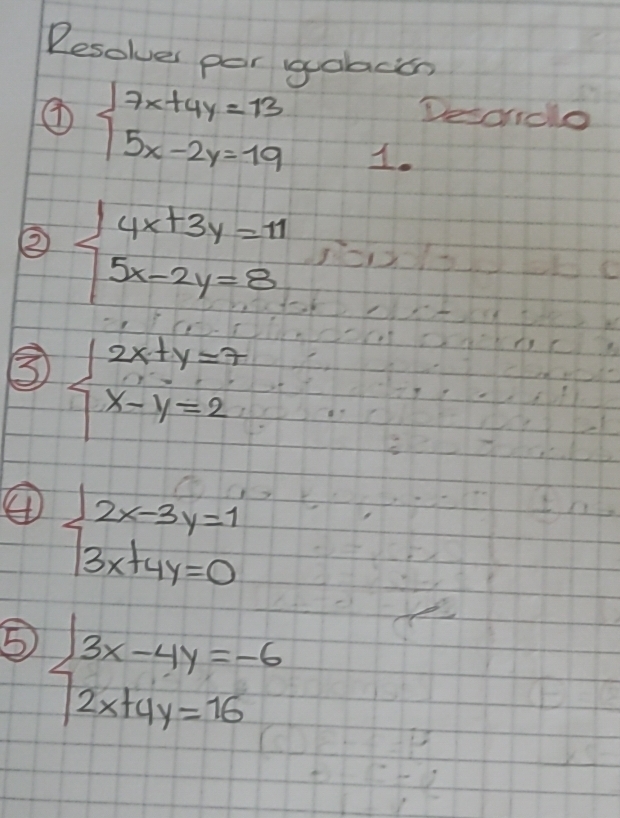 Resolver por igualación
① 7x+4y=13
5x-2y=19
Desarrollo
1.
② 4x+3y=11
5x-2y=8
③ 2x+y=7
x-y=2
④ 2x-3y=1
3x+4y=0
⑤ 3x-4y=-6
2x+4y=16